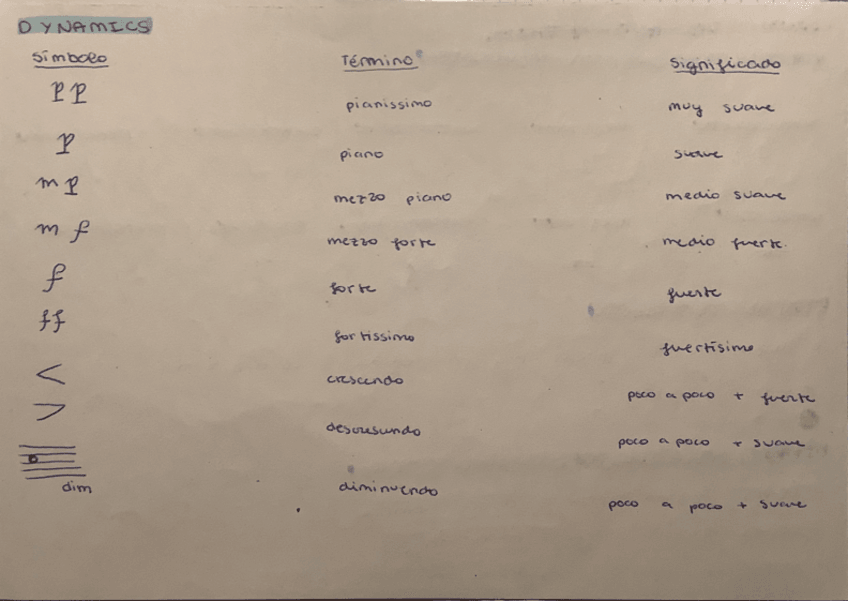 DYNAMICS
Símbolo Término Significado
pp pianissimo muy suave
p piano suave
mp mezzo piano medio suave
mf mezzo forte medio fuerte.
f forte fuerte
ff fortissimo fuertísimo
< crescendo poco a poco + fuerte
> descresundo poco a poco + suave
dim diminuendo poco a poco + suave